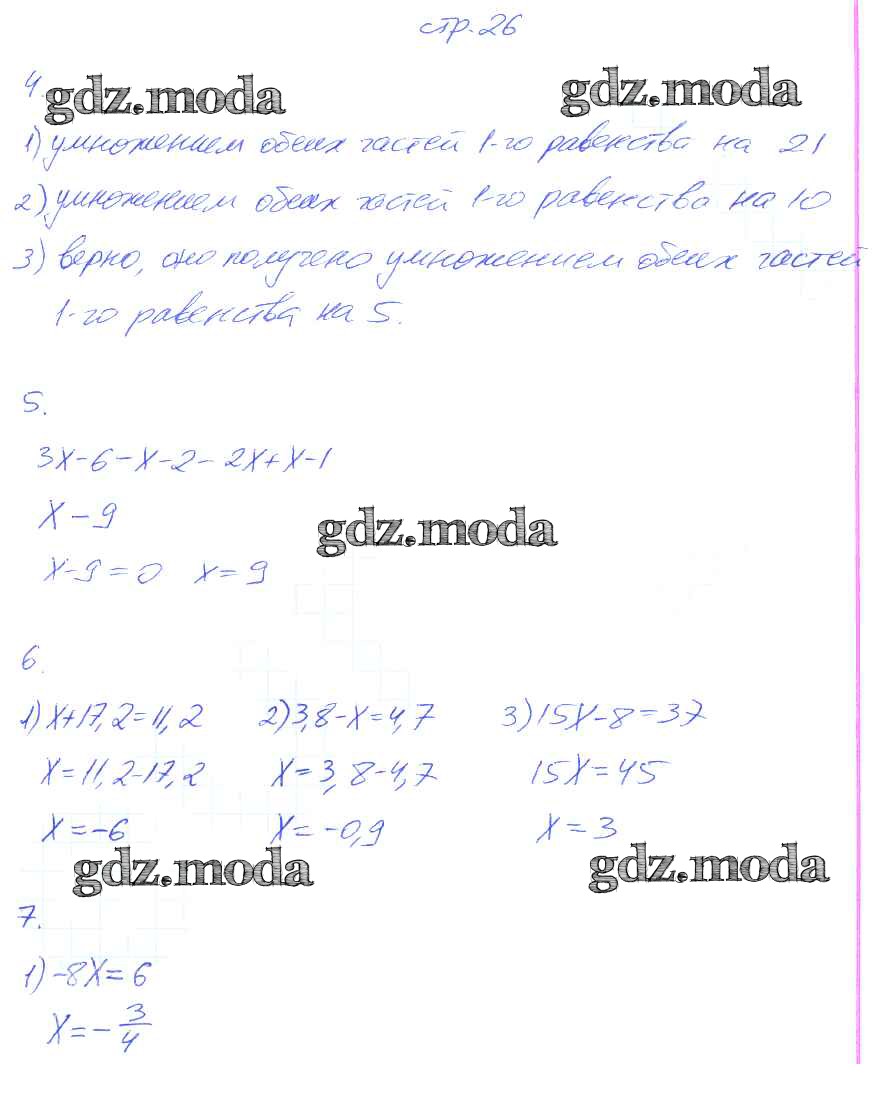 стр. 26
4.
gdz.moda gdz.moda
1) умножением обеих частей 1-го равенства на 21
2) умножением обеих частей 1-го равенства на 10
3) верно, оно получено умножением обеих частей
1-го равенства на 5.
5.
3x-6-x-2-2x+x-1
x-9
gdz.moda
x-9=0 x=9
6.
1) x+17,2=11,2 2) 3,8-x=4,7 3) 15x-8=37
x=11,2-17,2 x=3,8-4,7 15x=45
x=-6 x=-0,9 x=3
gdz.moda gdz.moda
7.
1) -8x=6
x=-3/4